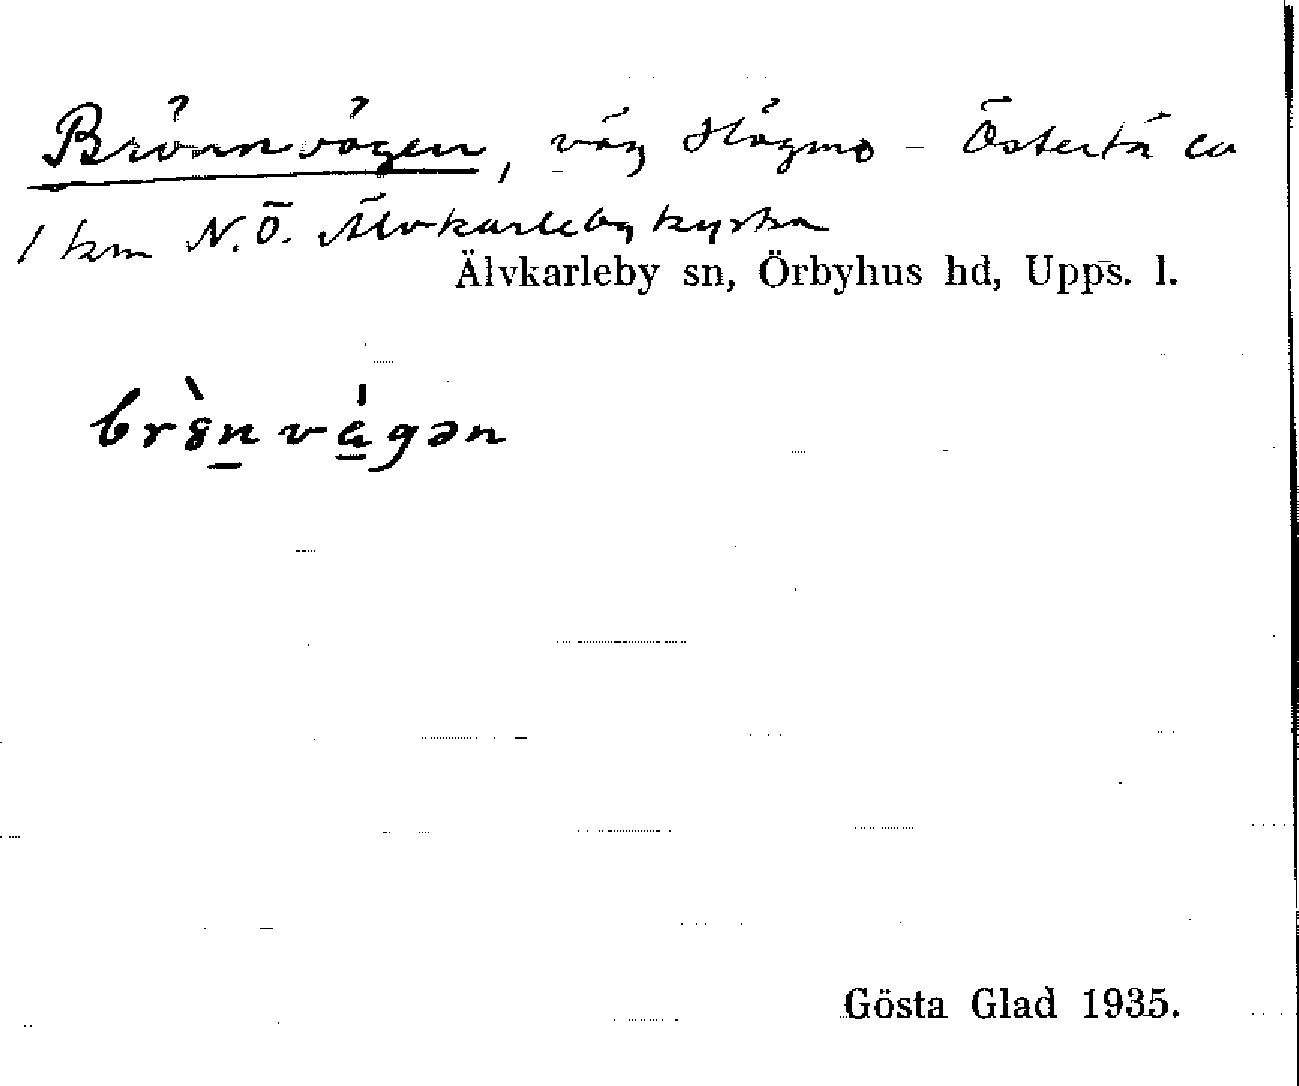 Brönnvägen, väg Högmo - Östertä ca
1 km N.Ö. Älvkarleby kyrka
Älvkarleby sn, Örbyhus hd, Upps. l.
brn̲va̲gən
Gösta Glad 1935.